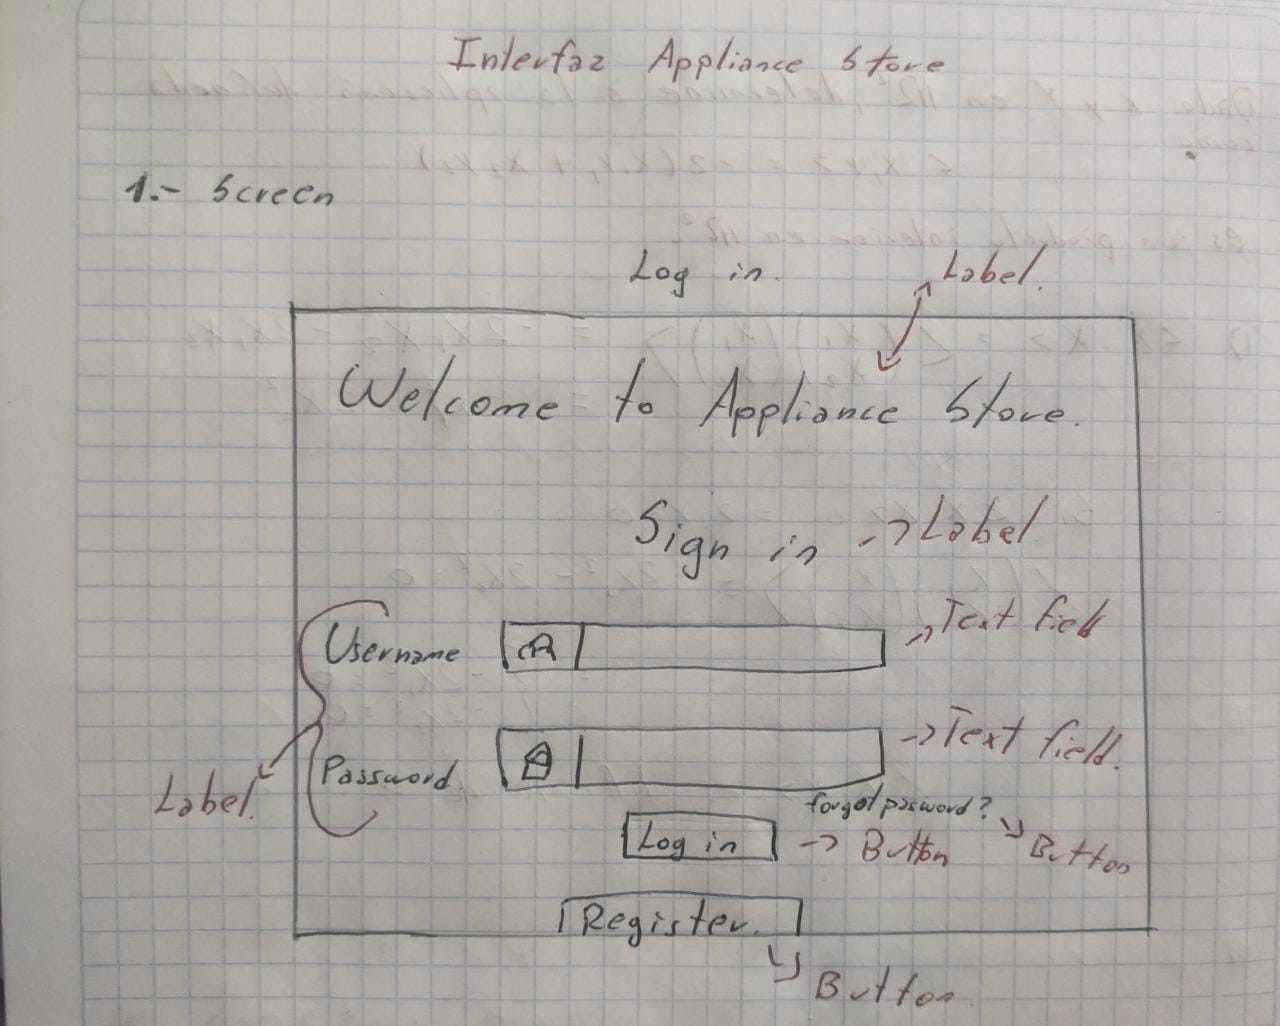 Interfaz Appliance Store
1.- Screen
Log in.
Label.
Welcome to Appliance Store.
Sign in → Label
Username
→ Text field
Password.
→ Text field.
Label.
forgot password?
Log in → Button
Button
Register.
Button